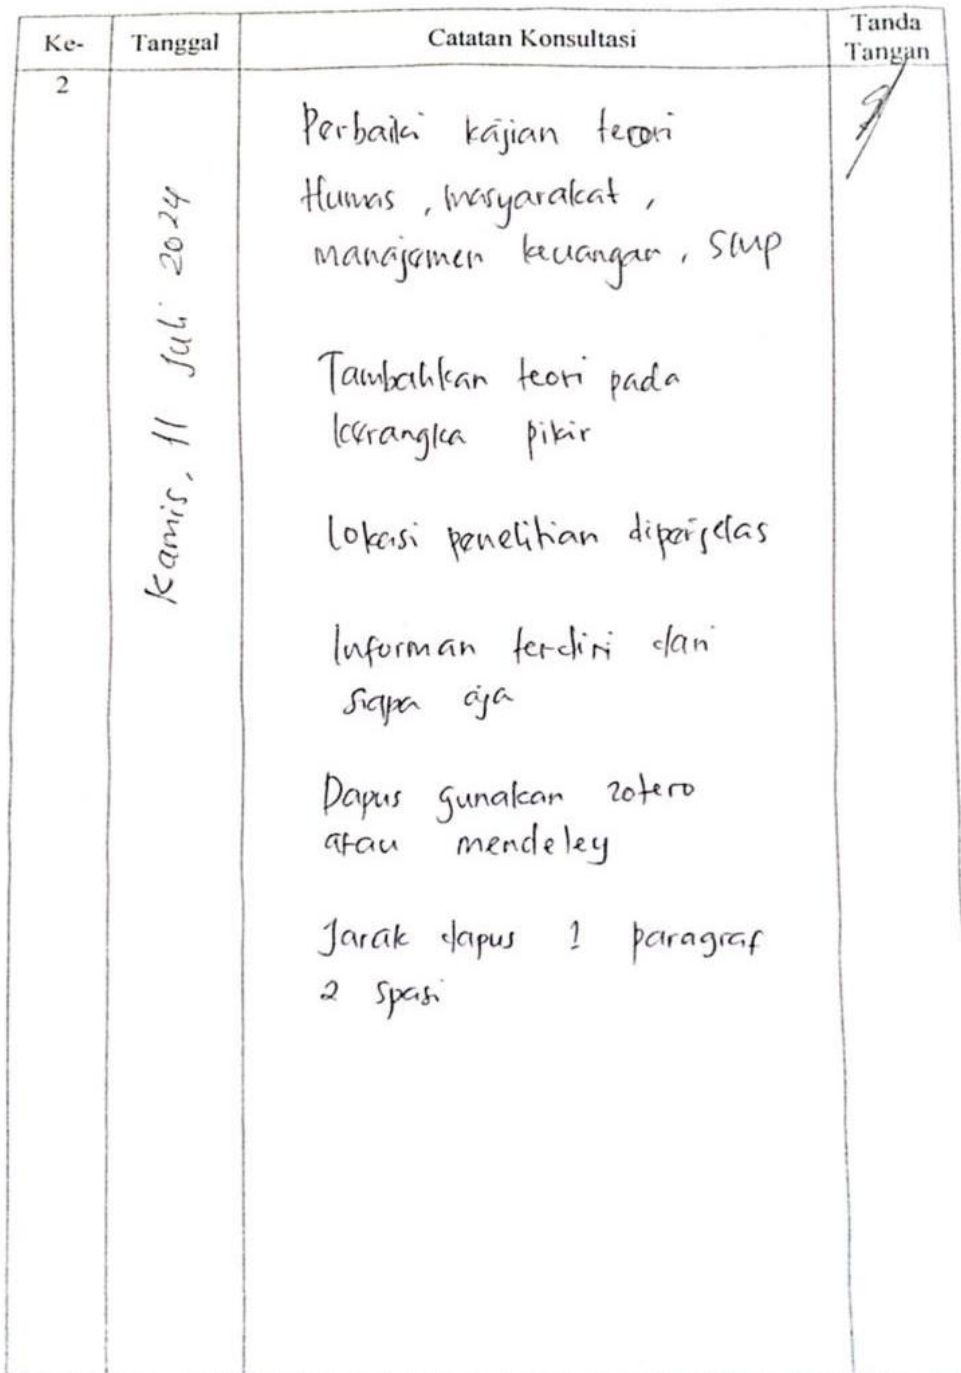 Ke-
Tanggal
Catatan Konsultasi
Tanda
Tangan
2
Kamis, 11 Juli 2024
Perbaiki kajian teori
Humas, masyarakat,
manajemen keuangan,
Tambahkan teori pada
kerangka pikir
Lokasi penelitian diperjelas
Informan terdiri dari
siapa aja
Dapus gunakan zotero
atau mendeley
Jarak dapus 1 paragraf
2 spasi